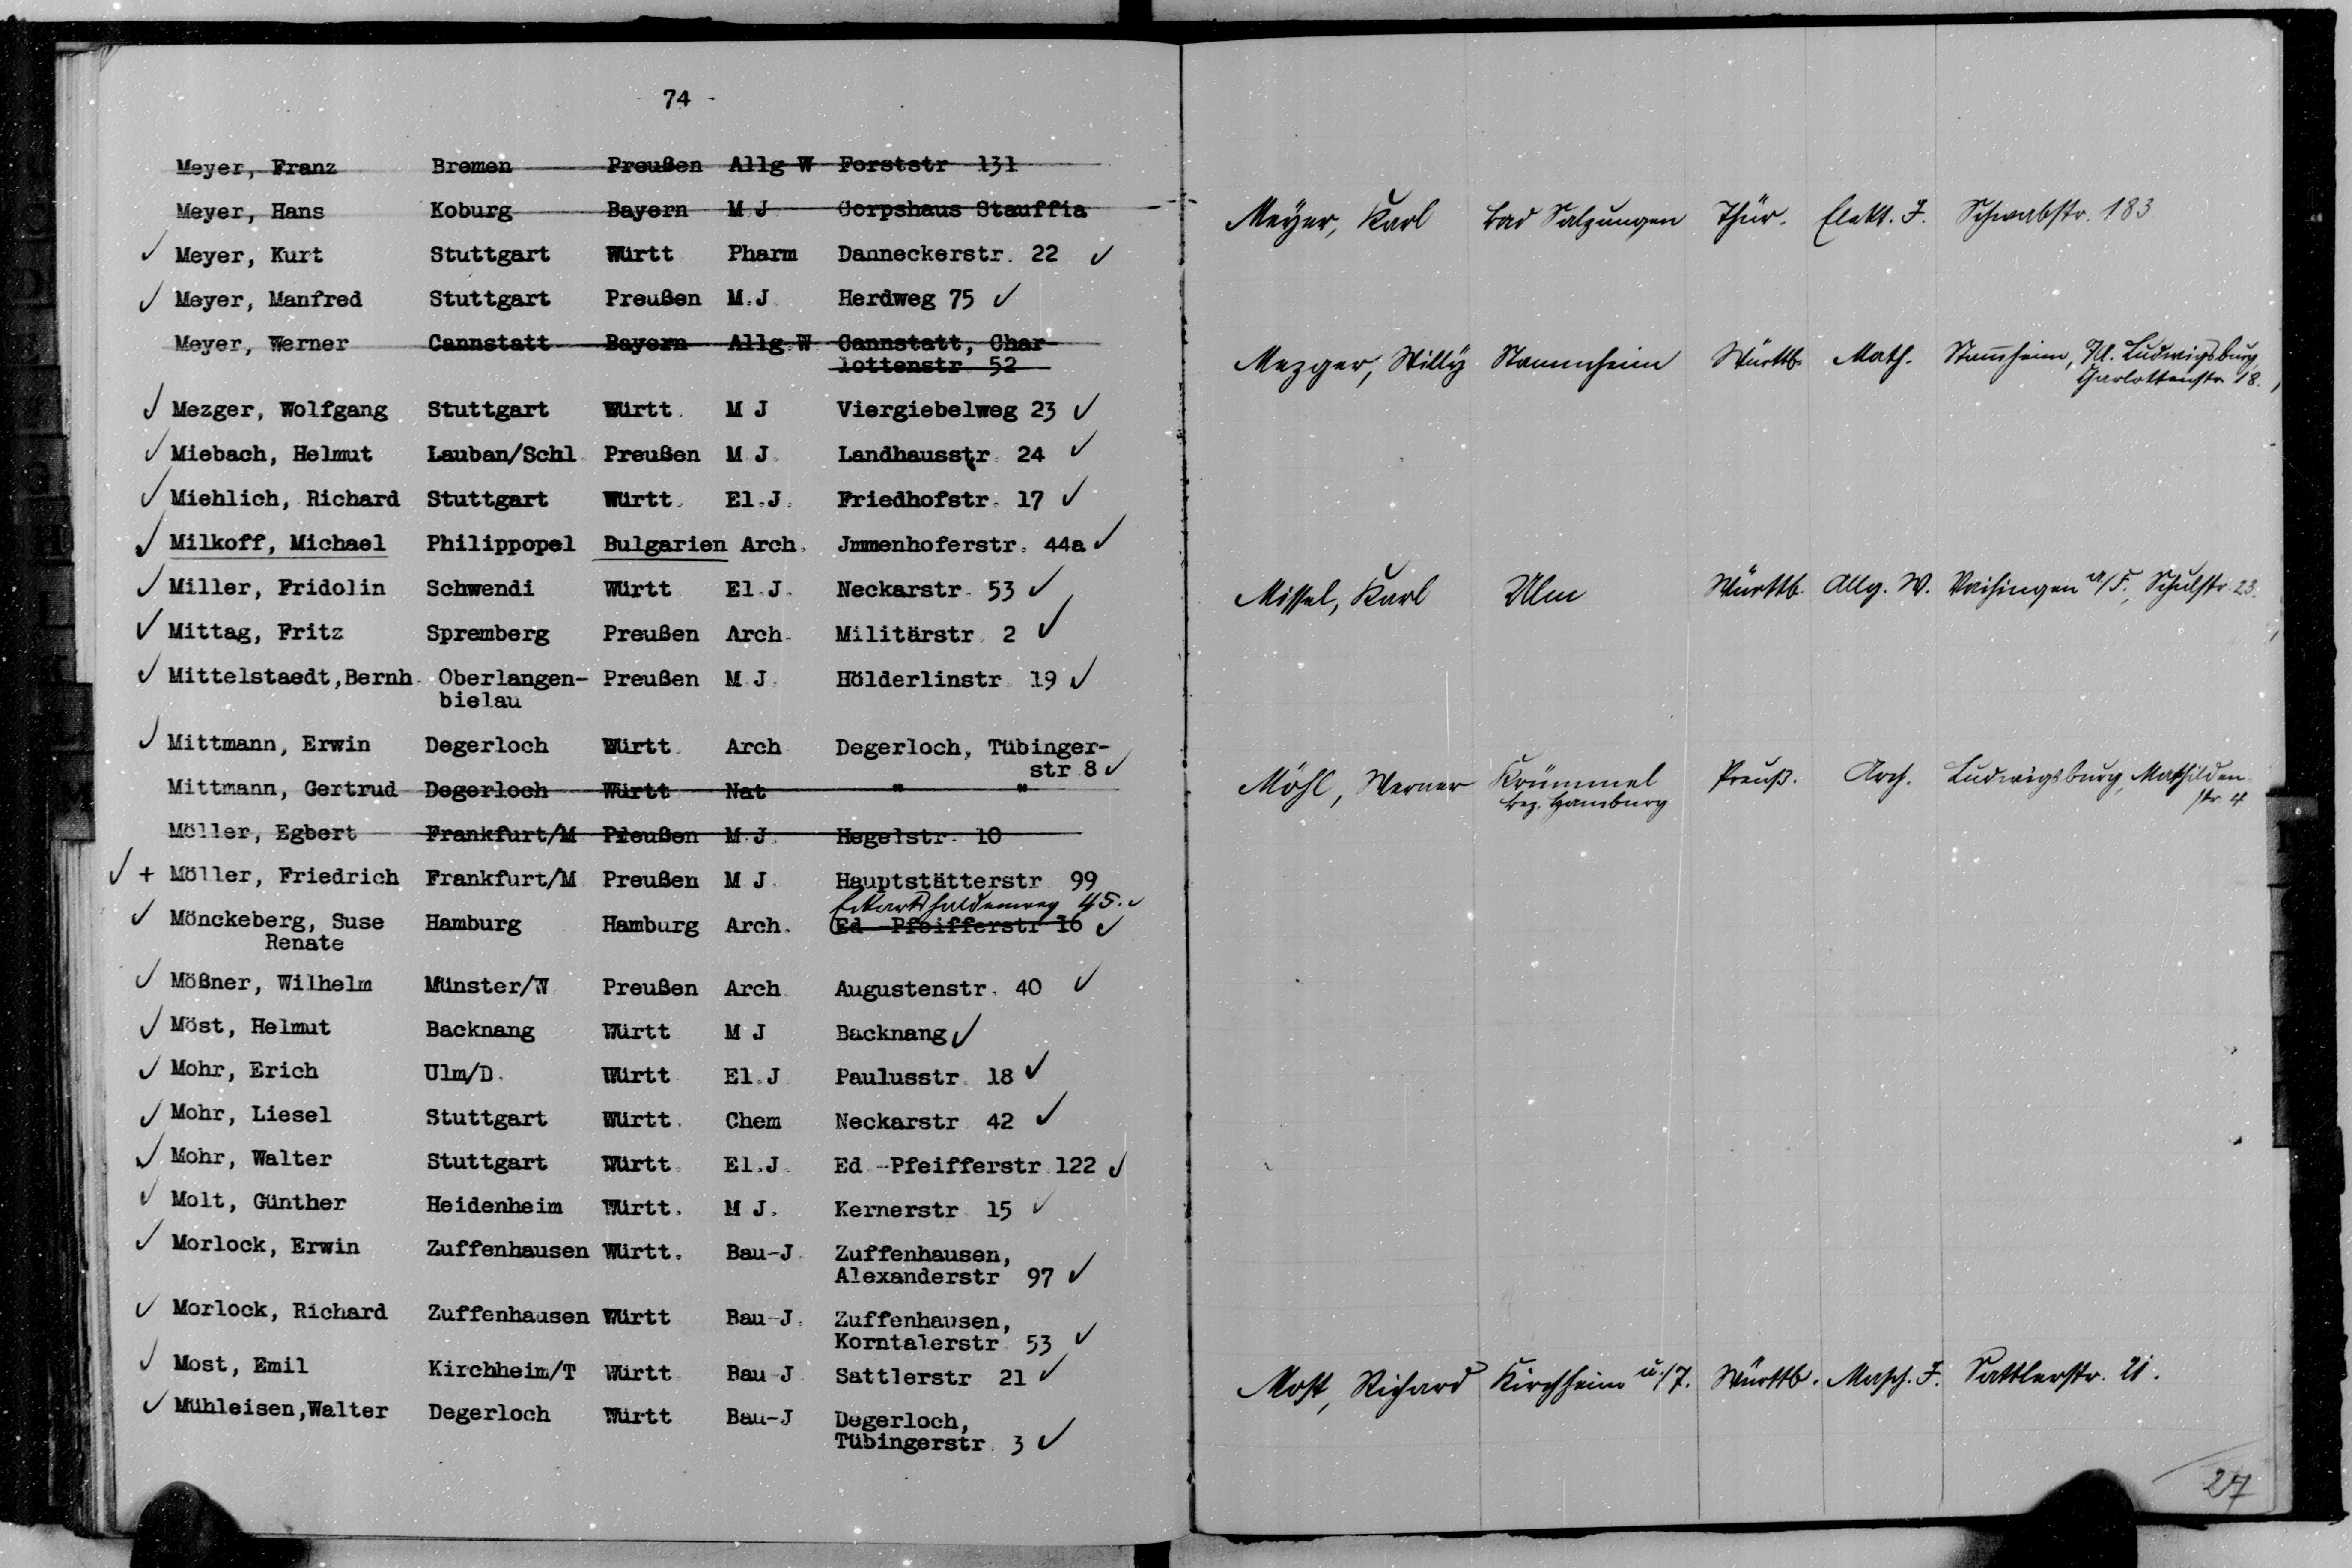 74 -
Meyer, Franz Bremen Preußen Allg W Forststr 131
Meyer, Hans Koburg Bayern M J Corpshaus Stauffia
✓ Meyer, Kurt Stuttgart Württ Pharm Danneckerstr. 22 ✓
✓ Meyer, Manfred Stuttgart Preußen M.J Herdweg 75 ✓
Meyer, Werner Cannstatt Bayern Allg.W Cannstatt, Char-
lottenstr 52
✓ Mezger, Wolfgang Stuttgart Württ. M J Viergiebelweg 23 ✓
✓ Miebach, Helmut Lauban/Schl. Preußen M J. Landhausstr. 24 ✓
✓ Miehlich, Richard Stuttgart Württ. El.J. Friedhofstr. 17 ✓
✓ Milkoff, Michael Philippopel Bulgarien Arch. Jmmenhoferstr. 44a ✓
✓ Miller, Fridolin Schwendi Württ El.J. Neckarstr. 53 ✓
✓ Mittag, Fritz Spremberg Preußen Arch. Militärstr. 2 ✓
✓ Mittelstaedt,Bernh. Oberlangen- Preußen M.J. Hölderlinstr. 19 ✓
bielau
✓ Mittmann, Erwin Degerloch Württ. Arch Degerloch, Tübinger-
str 8 ✓
Mittmann, Gertrud Degerloch Württ Nat " "
Möller, Egbert Frankfurt/M Preußen M.J. Hegelstr. 10
✓ + Möller, Friedrich Frankfurt/M Preußen M J. Hauptstätterstr 99
Eckartshaldenweg 45. ✓
✓ Mönckeberg, Suse Hamburg Hamburg Arch. Ed -Pfeifferstr 16 ✓
Renate
✓ Mößner, Wilhelm Münster/W Preußen Arch. Augustenstr. 40 ✓
✓ Möst, Helmut Backnang Württ M J Backnang ✓
✓ Mohr, Erich Ulm/D. Württ. El.J Paulusstr. 18 ✓
✓ Mohr, Liesel Stuttgart Württ. Chem Neckarstr 42 ✓
✓ Mohr, Walter Stuttgart Württ. El.J. Ed.-Pfeifferstr.122 ✓
✓ Molt, Günther Heidenheim Württ. M J. Kernerstr 15 ✓
✓ Morlock, Erwin Zuffenhausen Württ. Bau-J. Zuffenhausen,
Alexanderstr 97 ✓
✓ Morlock, Richard Zuffenhausen Württ Bau-J. Zuffenhausen,
Korntalerstr 53 ✓
✓ Most, Emil Kirchheim/T Württ. Bau J. Sattlerstr 21 ✓
✓ Mühleisen,Walter Degerloch Württ Bau-J Degerloch,
Tübingerstr. 3 ✓
Meyer, Karl Bad Salzungen Thür. Elekt. J. Schwabstr. 183
Mezger, Willy Stammheim Württb. Math. Stam̄heim, Ludwigsburg,
Charlottenstr. 18.
Missel, Karl Ulm Württb. Allg. W. Vaihingen a/F., Schulstr. 23.
Möhl, Werner Krümmel Preuß. Arch. Ludwigsburg, Mathilden-
Bez. Hamburg str. 4
Most, Richard Kirchheim u/T. Württb. Masch. J. Sattlerstr. 21.
27